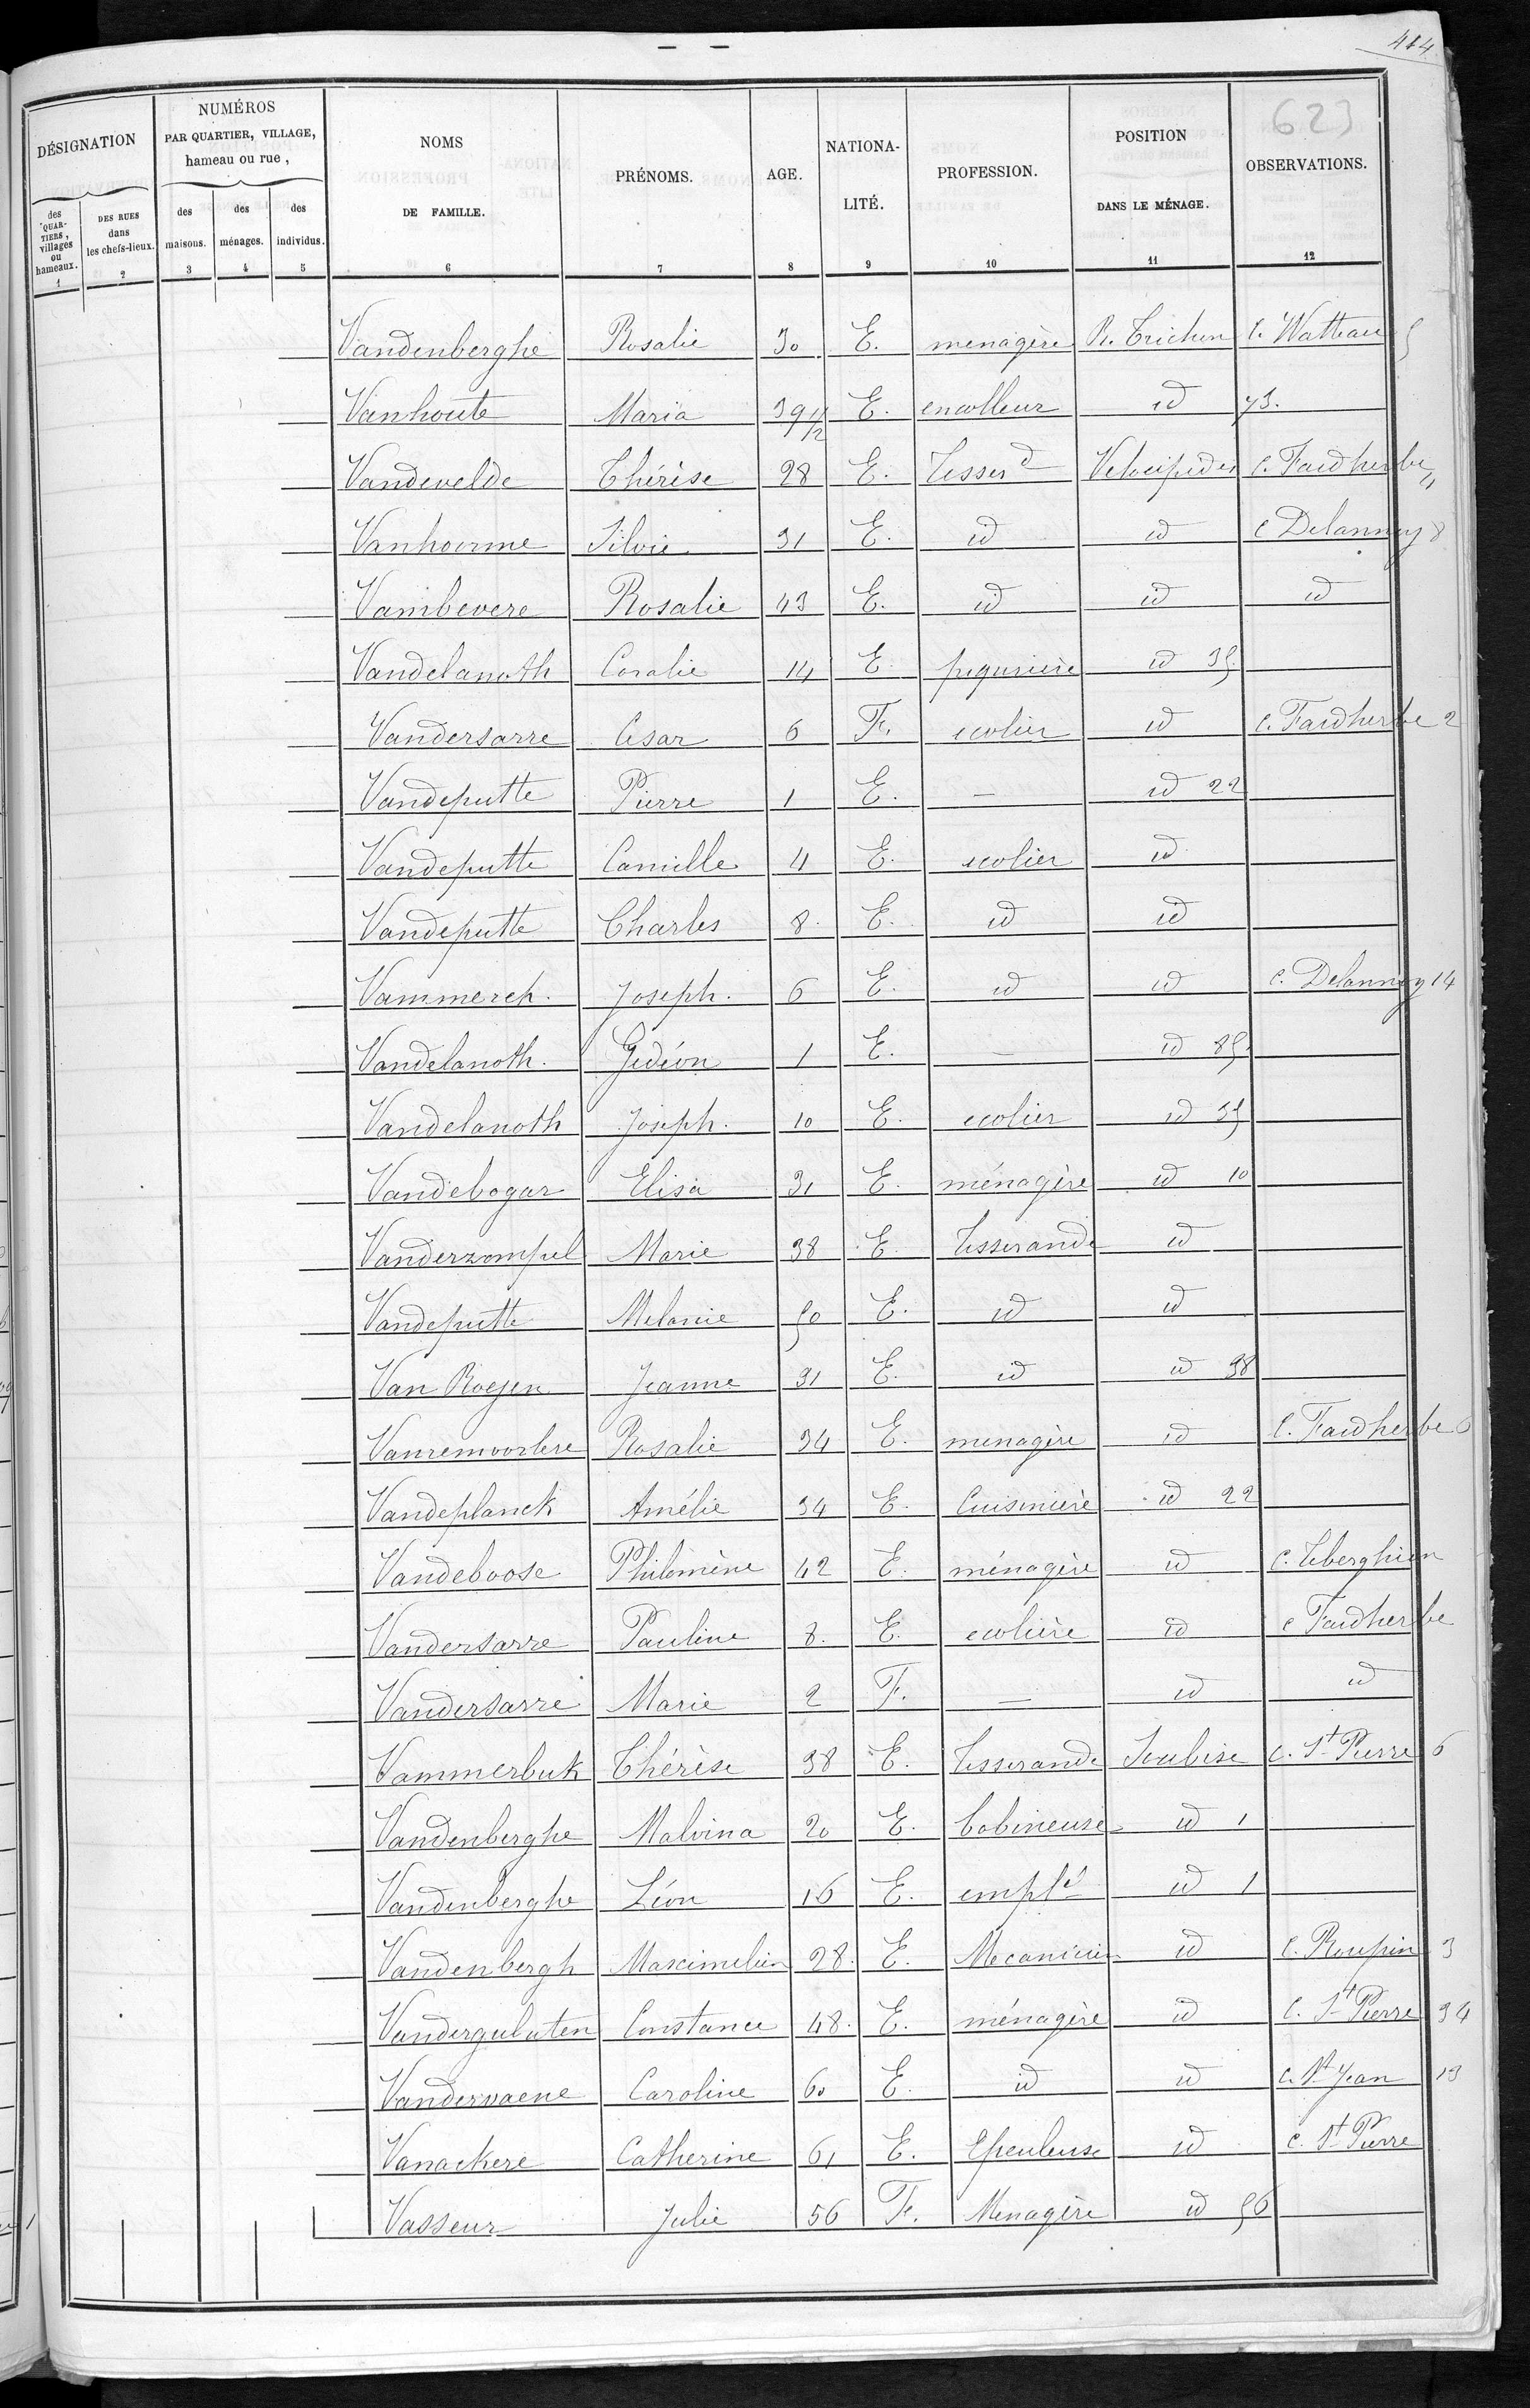 414
623
DÉSIGNATION
NUMÉROS PAR QUARTIER, VILLAGE, hameau ou rue,
NOMS DE FAMILLE.
PRÉNOMS.
AGE.
NATIONA-LITÉ.
PROFESSION.
POSITION DANS LE MÉNAGE.
OBSERVATIONS.
des QUAR-TIERS, villages ou hameaux.
DES RUES dans les chefs-lieux.
des maisons.
des ménages.
des individus.
1 2 3 4 5 6 7 8 9 10 11 12
Vandenberghe Rosalie 30 E. menagère R. Trichon C. Watteau 5
Vanhoute Maria 39 1/2 E. encolleur id 73.
Vandevelde Thérèse 28 E. Tisserd Velocipedes C. Faidherbe 11
Vanhoorme Silvie 31 E. id id C Delannoy 8
Vambevere Rosalie 43 E. id id id
Vandelanoth Coralie 14 E. piqurière id 35.
Vandersarre Cesar 6 F. ecolier id C. Faidherbe 2
Vandeputte Pierre 1 E. — id 22
Vandeputte Camille 4 E. ecolier id
Vandeputte Charles 8. E. id id
Vammerch. Joseph. 6 E. id id C. Delannoy 14
Vandelanoth. Gédéon 1 E. — id 85.
Vandelanoth Joseph. 10 E. ecolier id 35
Vandebogar Elisa 31 E. ménagère id 10
Vanderzompel Marie 38 E. Tisserande id
Vandeputte Melanie 50 E. id id
Van Roeyen Jeanne 31 E. id id 38
Rosalie 34 E. menagère id C. Faidherbe 6
Vandeplanck Amélie 34 E. Cuisinière id 22
Vandeboose Philomène 42 E. ménagère id C. Teberghien
Vandersarre Pauline 8. E. ecolière id C Faidherbe
Vandersarre Marie 2 F. — id id
Vammerbuk Thérèse 38 E. Tisserande Soubise C. St Pierre 6
Vandenberghe Malvina 20 E. bobineuse id 1
Vandenberghe Léon 16 E. emplé id 1
Vandenbergh Maximelien 28. E. Mecanicien id C. Roupin 3
Vandergulaten Constance 48. E. ménagère id C. St Pierre 34
Vandervaene Caroline 60 E. id id C. St Jean 13
Vanackere Catherine 61 E. Epeuleuse id C. St Pierre
Vasseur Julie 56 F. Menagère id 56